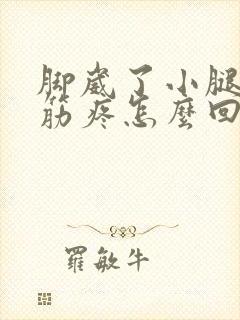 脚崴了小腿
筋疼怎麽回
羅敏牛